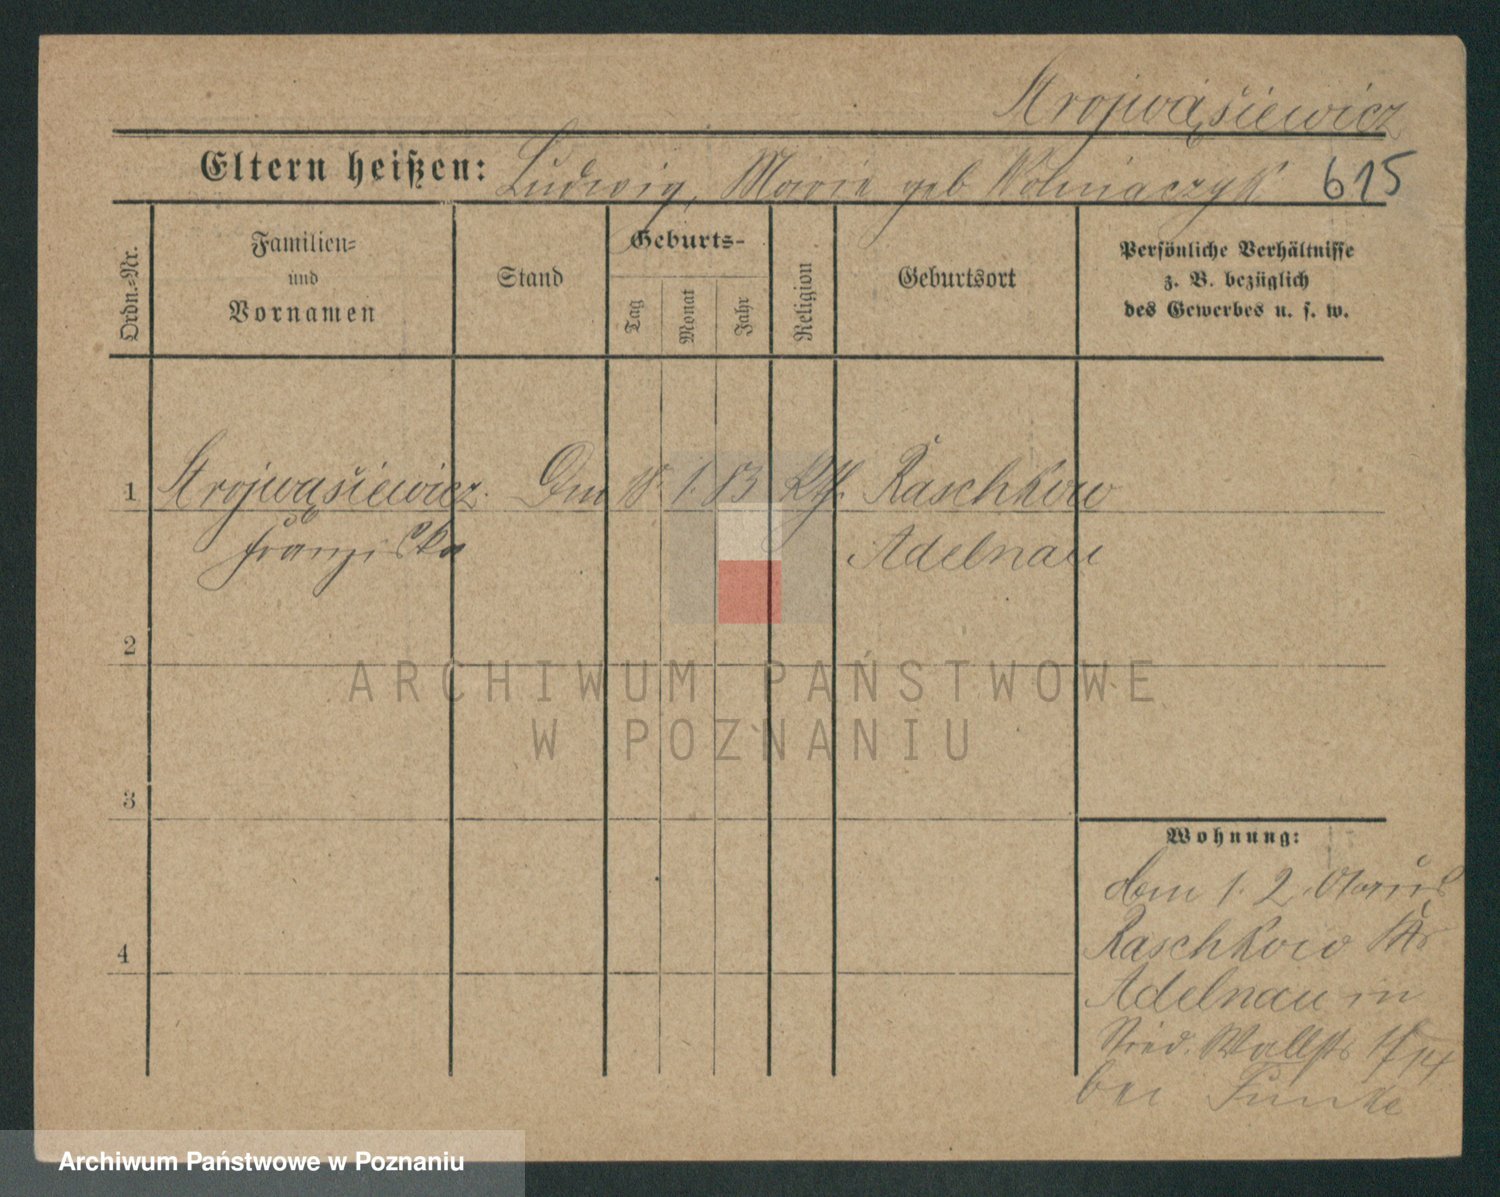 Strojwąsiewicz
Eltern heißen: Ludwig, Marie geb Wolniaczyk 615
Ordn.-Nr.
Familien-
und
Vornamen
Stand
Geburts-
Tag
Monat
Jahr
Religion
Geburtsort
Persönliche Verhältnisse
z. B. bezüglich
des Gewerbes u. s. w.
1 Strojwąsiewicz. Dm 18. 1. 83 Kth. Raschkow
Franziska Adelnau
2
3
4
Wohnung:
1. 2.
Raschkow Kr
Adelnau in
Wallstr
bei Funke
ARCHIWUM PAŃSTWOWE
W POZNANIU
Archiwum Państwowe w Poznaniu